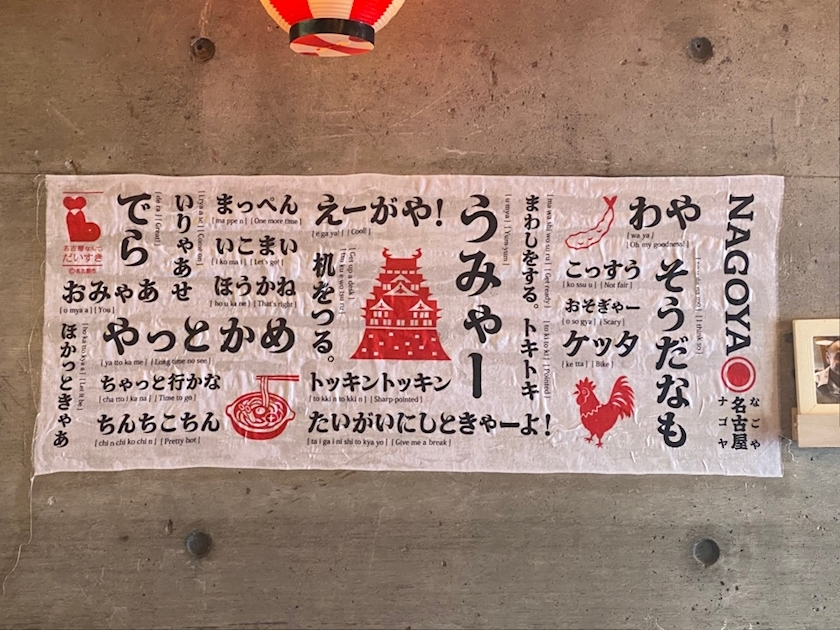 NAGOYA
なごや
名古屋
ナゴヤ
わや
[ wa ya ]
[ Oh my goodness! ]
そうだなも
こっすう
[ ko ssu u ] [ Not fair ]
おそぎゃー
[ o so gya ] [ Scary ]
ケッタ
[ ke tta ] [ Bike ]
まわしをする。
[ ma wa shi wo su ru ] [ Get ready ]
トキトキ
[ to ki to ki ] [ Pointed ]
うみゃー
[ u mya ] [ Yum-yum ]
えーがや!
[ e ga ya! ] [ Cool! ]
机をつる。
[ tsu ku e wo tsu ru ] [ Get up a desk ]
トッキントッキン
[ to kki n to kki n ] [ Sharp-pointed ]
たいがいにしときゃーよ!
[ ta i ga i ni shi to kya yo ] [ Give me a break ]
まっぺん
[ ma ppe n ] [ One more time ]
いこまい
[ i ko ma i ] [ Let's go! ]
ほうかね
[ ho u ka ne ] [ That's right ]
いりゃあせ
[ i rya a se ] [ Come on ]
でら
[ de ra ] [ Great ]
名古屋なんて
だいすき
おみゃあ
[ o mya a ] [ You ]
やっとかめ
[ ya tto ka me ] [ Long time no see ]
ちゃっと行かな
[ cha tto i ka na ] [ Time to go ]
ちんちこちん
[ chi n chi ko chi n ] [ Pretty hot ]
ほかっときゃあ
[ ho ka tto kya a ] [ Let it be ]